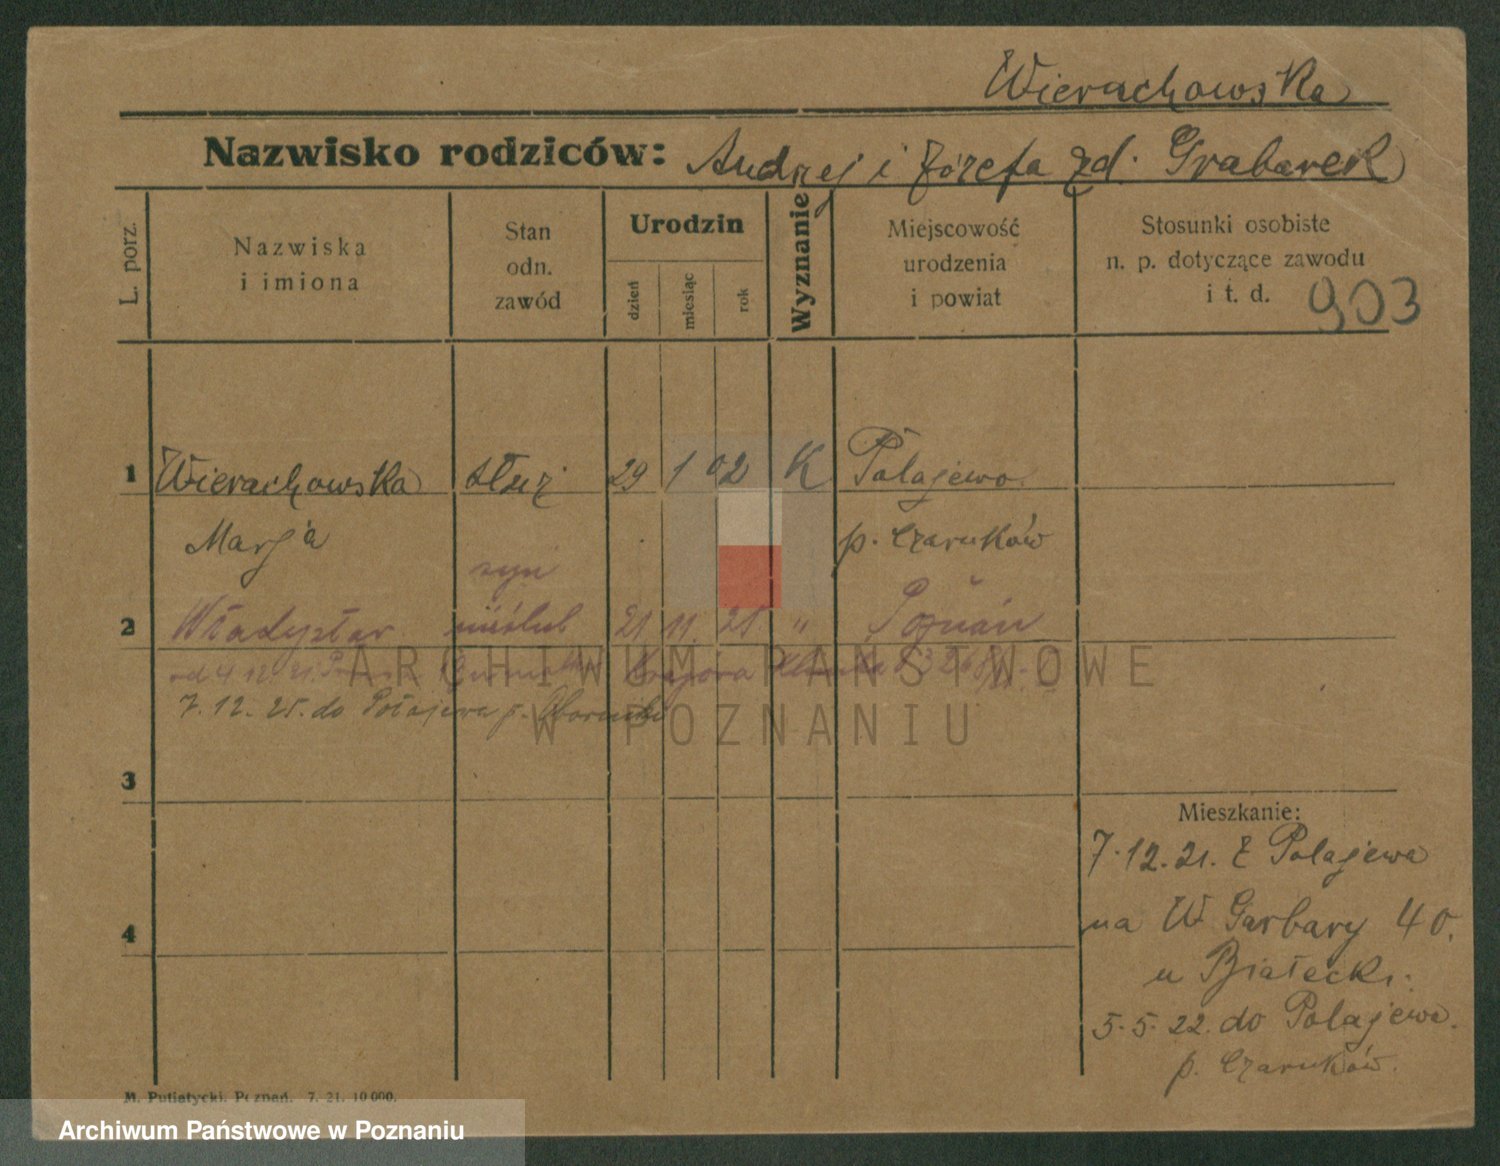 Wierachowska
Nazwisko rodziców: Andrzej i Józefa zd. Grabarek
L. porz.
Nazwiska i imiona
Stan odn. zawód
Urodzin
dzień
miesiąc
rok
Wyznanie
Miejscowość urodzenia i powiat
Stosunki osobiste n. p. dotyczące zawodu i t. d.
903
1 Wierachowska służ 29 1 02 K Połajewo
Marja p. Czarnków
syn
2 Władysław nieślub 21 11 21 " Poznań
od 4 12 21 Krajowa Klinika
7. 12. 21. do Połajewa p.
3
4
Mieszkanie:
7.12.21. z Połajewa
na W. Garbary 40.
u Białecki.
5.5.22. do Połajewa.
p. Czarnków.
M. Putiatycki. Poznań. 7. 21. 10 000.
ARCHIWUM PAŃSTWOWE
W POZNANIU
Archiwum Państwowe w Poznaniu